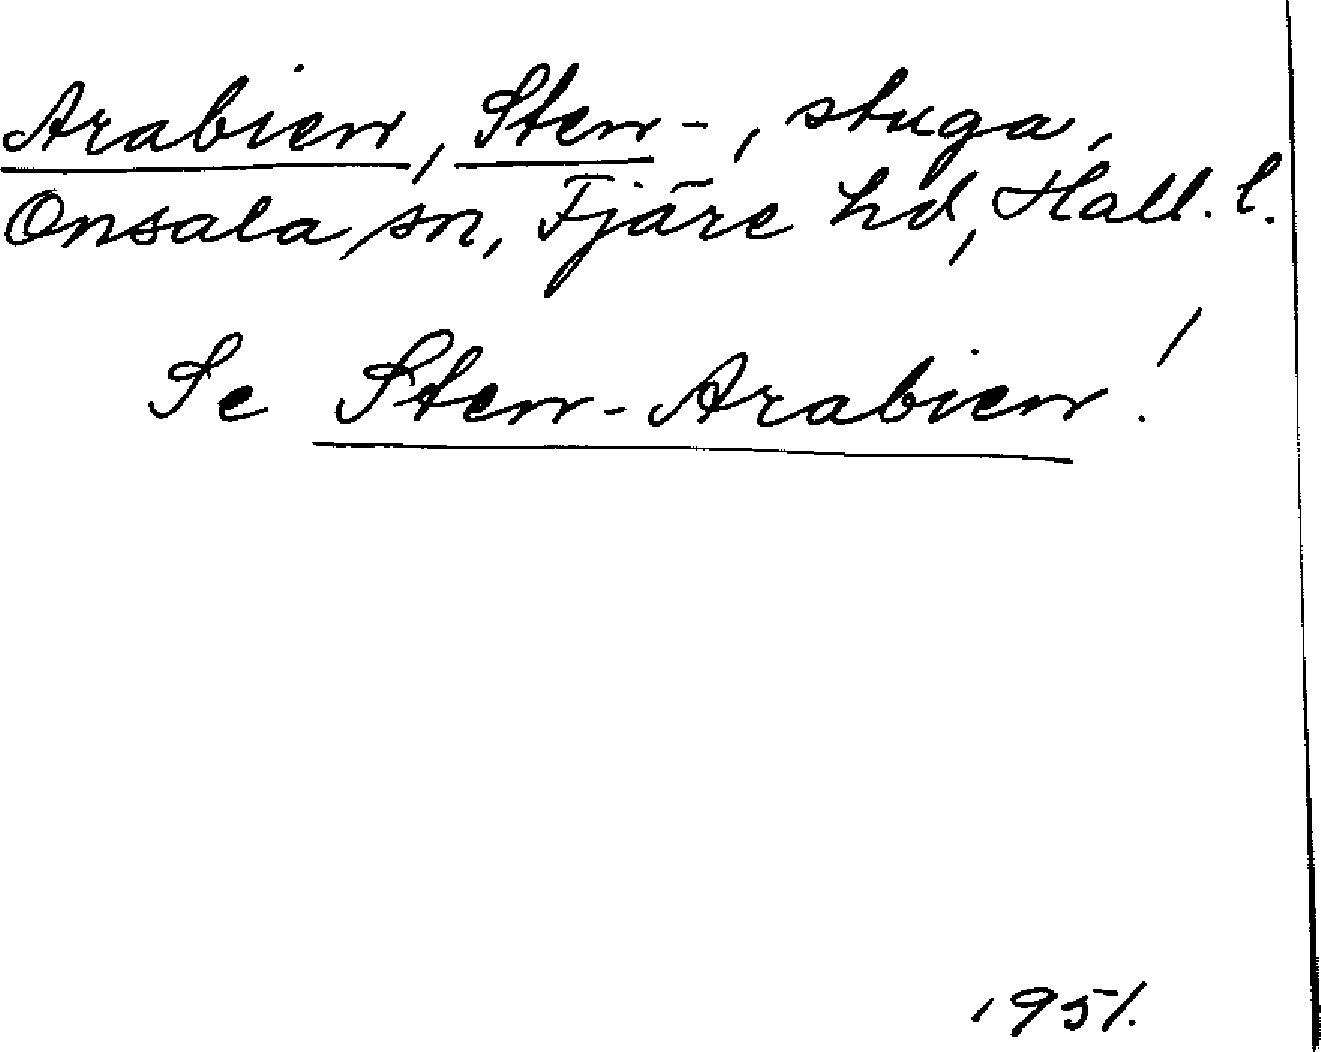 Arabien, Sten-, stuga,
Onsala sn, Fjäre hd, Hall. l.
Se Sten-Arabien!
1951.